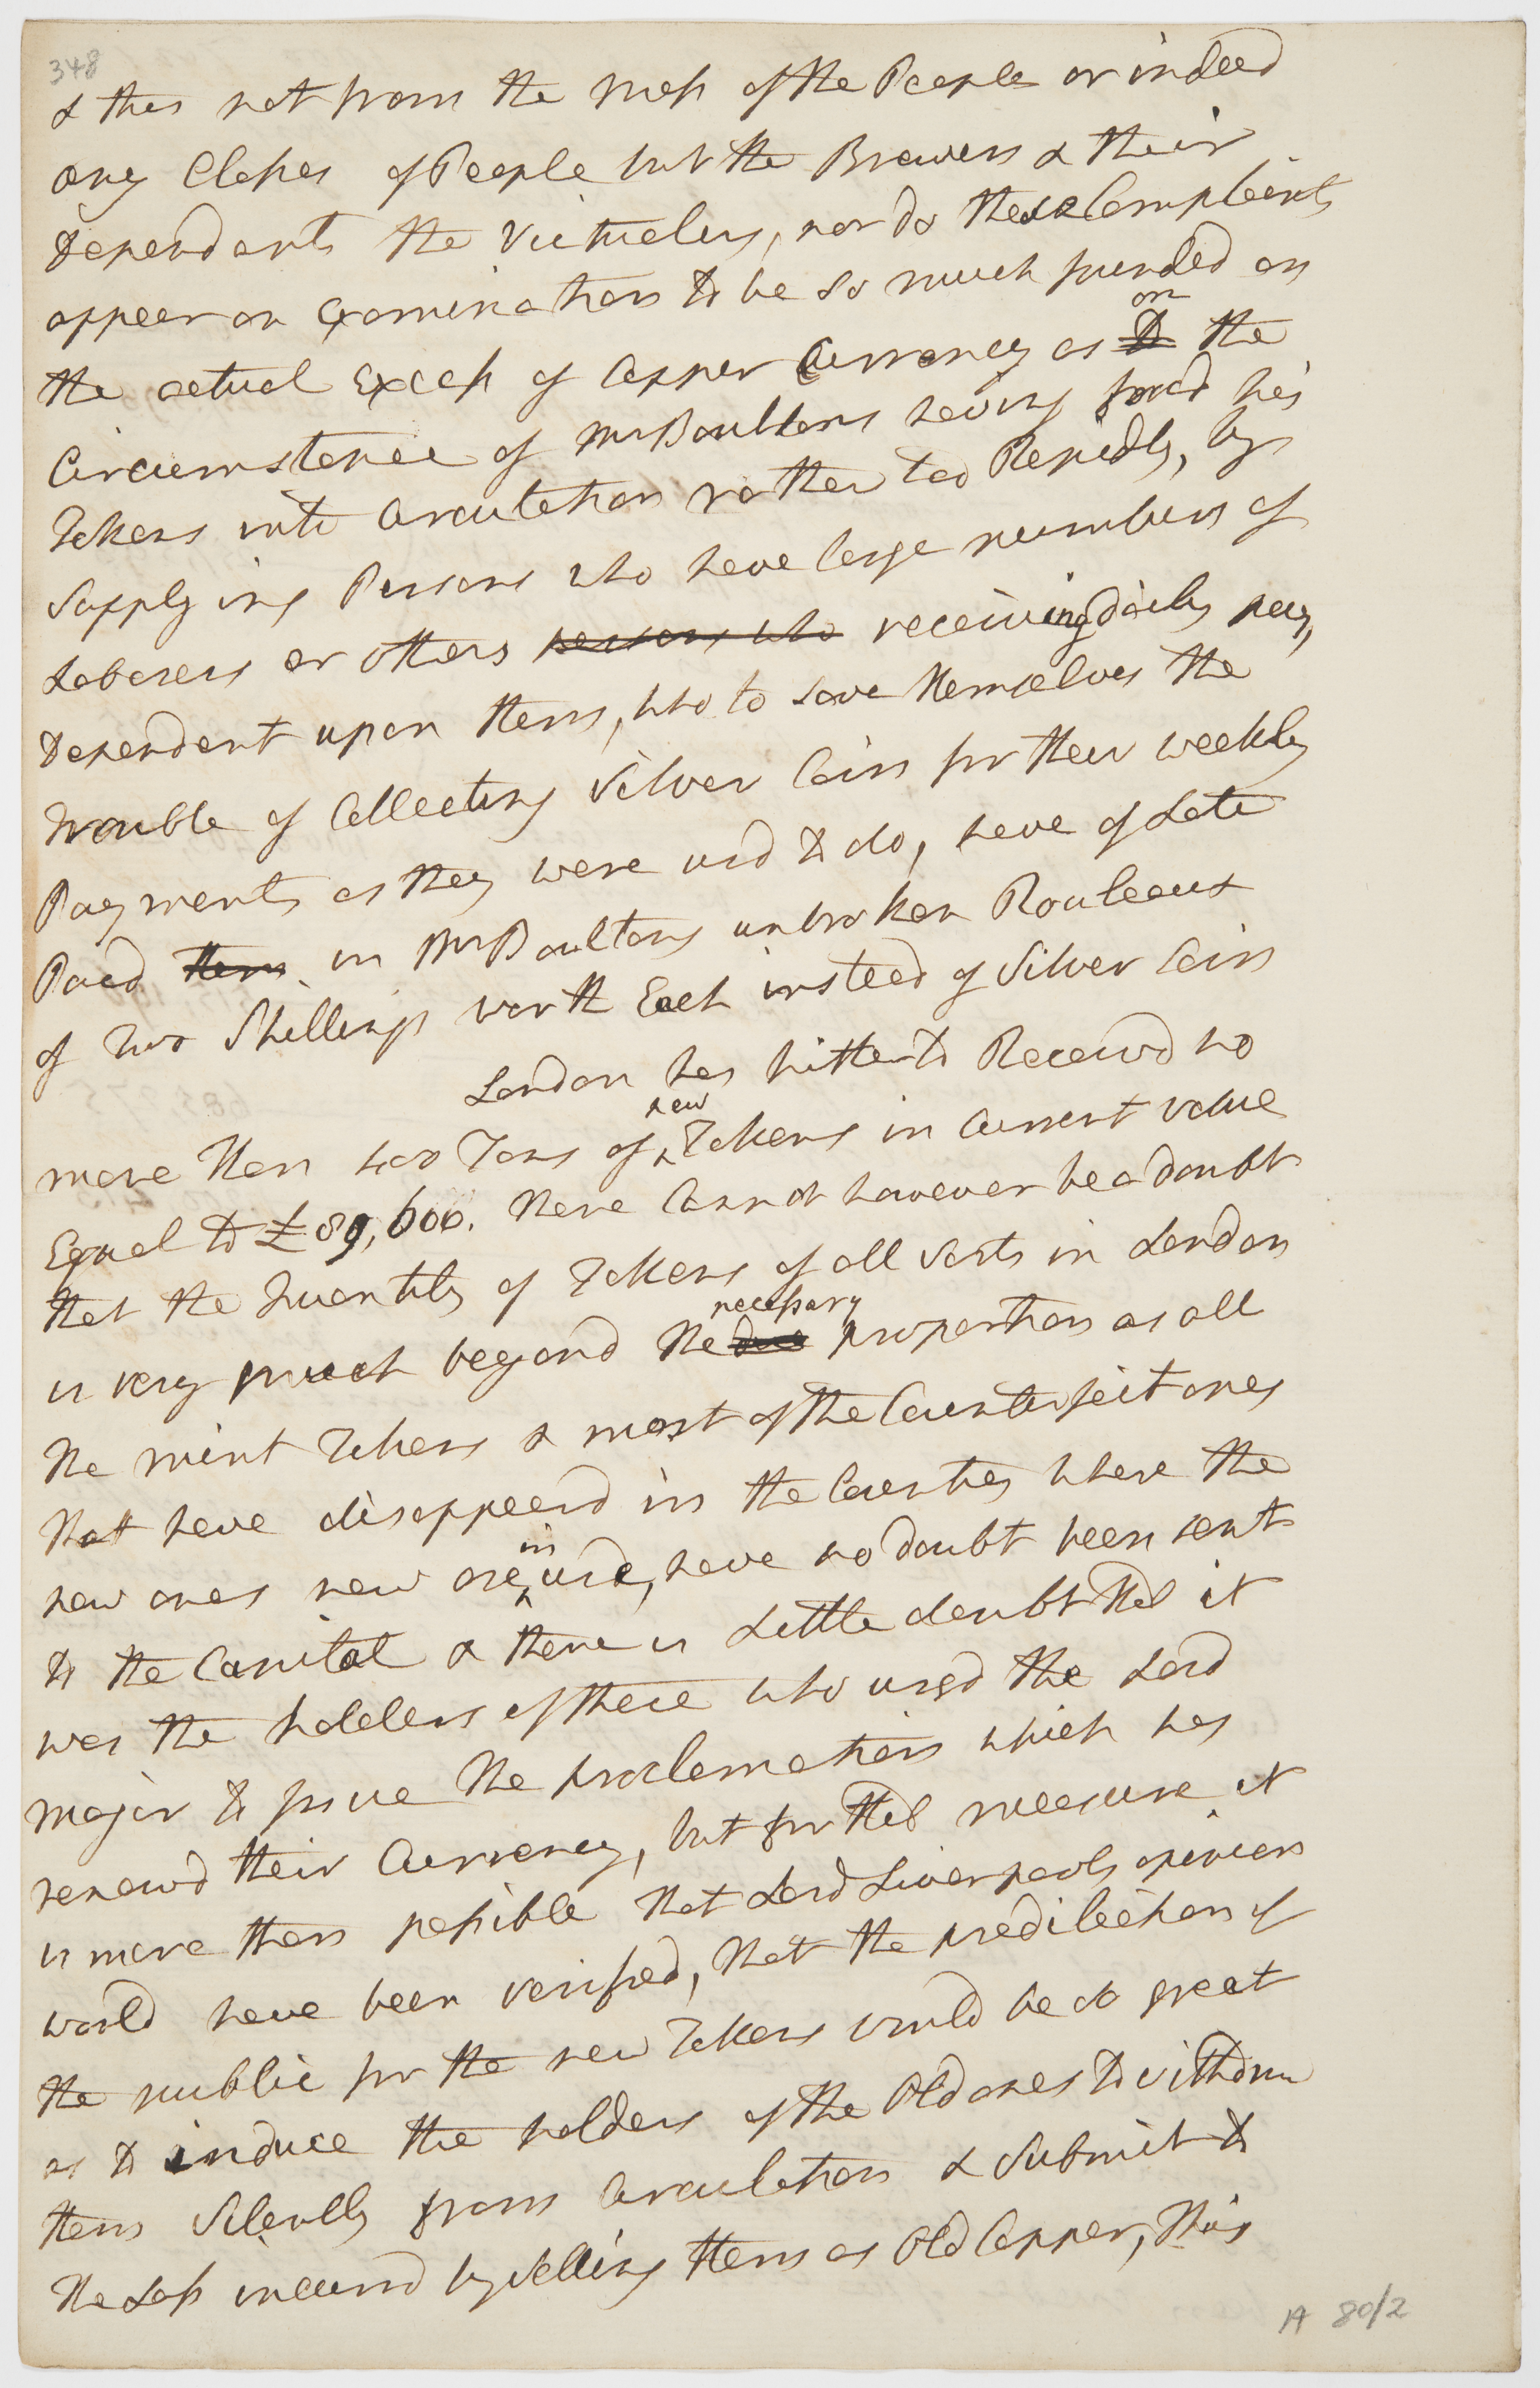 348
& this not from the Mass of the People or indeed
any Classes of People but the Brewers & their
Dependants the Victuelers, nor do these Complaints
appear on Examination to be so much founded on
the actual Excess of Copper Currency as to on the
Circumstance of Mr Boultons having forcd his
Tokens into Circulation rather too Rapidly, by
Supplying Persons who have large numbers of
Laborers or others persons who receiving daily pay,
Dependent upon them, who to save themselves the
trouble of Collecting Silver Coin for their weekly
Payments as they were usd to do, have of Late
Paid them in Mr Boultons unbroken Rouleaux
of Two Shillings worth Each instead of Silver Coin
London has hitherto Receivd no
more than 400 Tons of new Tokens in Current value
Equal to £89,600. there Cannot however be a doubt
that the Quantity of Tokens of all Sorts in London
is very much beyond the due necessary proportion as all
the mint Tokens & most of the Counterfeit ones
that have disappeard in the Counties where the
new ones new are in use, have no doubt been sent
to the Capital & there is Little doubt that it
was the holders of these who urgd the Lord
Major to issue the proclamation which has
renewd their Currency, but for that measure it
is more than possible that Lord Liverpools opinion
would have been verified, that the predilection of
the public for the new Tokens would be so great
as to induce the holders of the Old ones to withdraw
them Silently from Circulation & Submit to
the Loss incurrd by Selling them as Old Copper, this
A 80/2